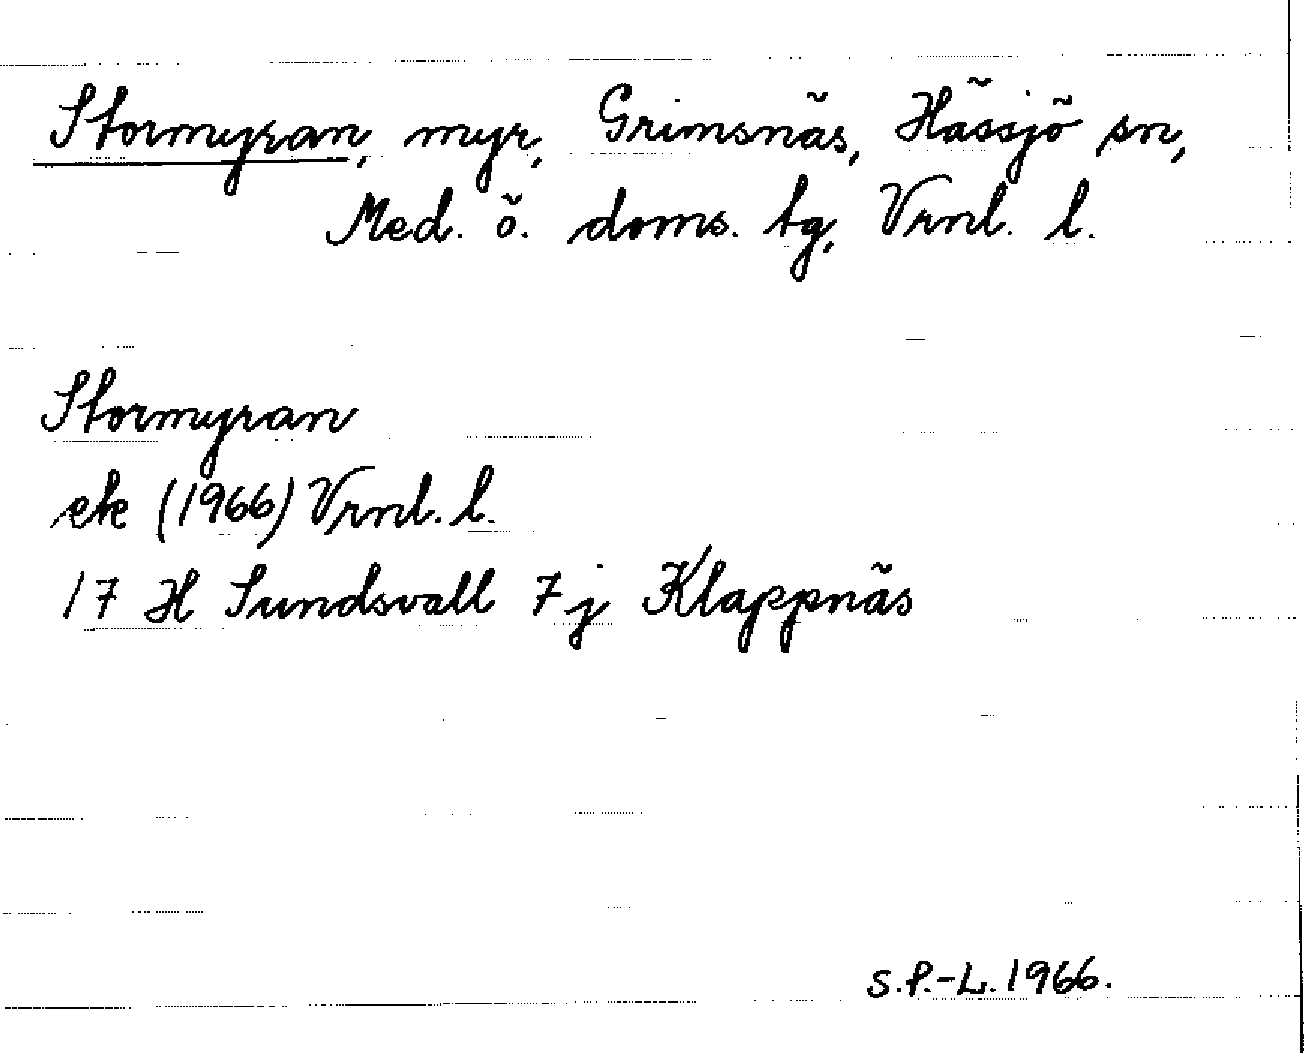 Stormyran, myr, Grimsnäs, Hässjö sn,
Med. ö. doms. tg, Vrnl. l.
Stormyran
ek (1966) Vrnl. l.
17 H Sundsvall 7 j Klappnäs
S.P.-L. 1966.